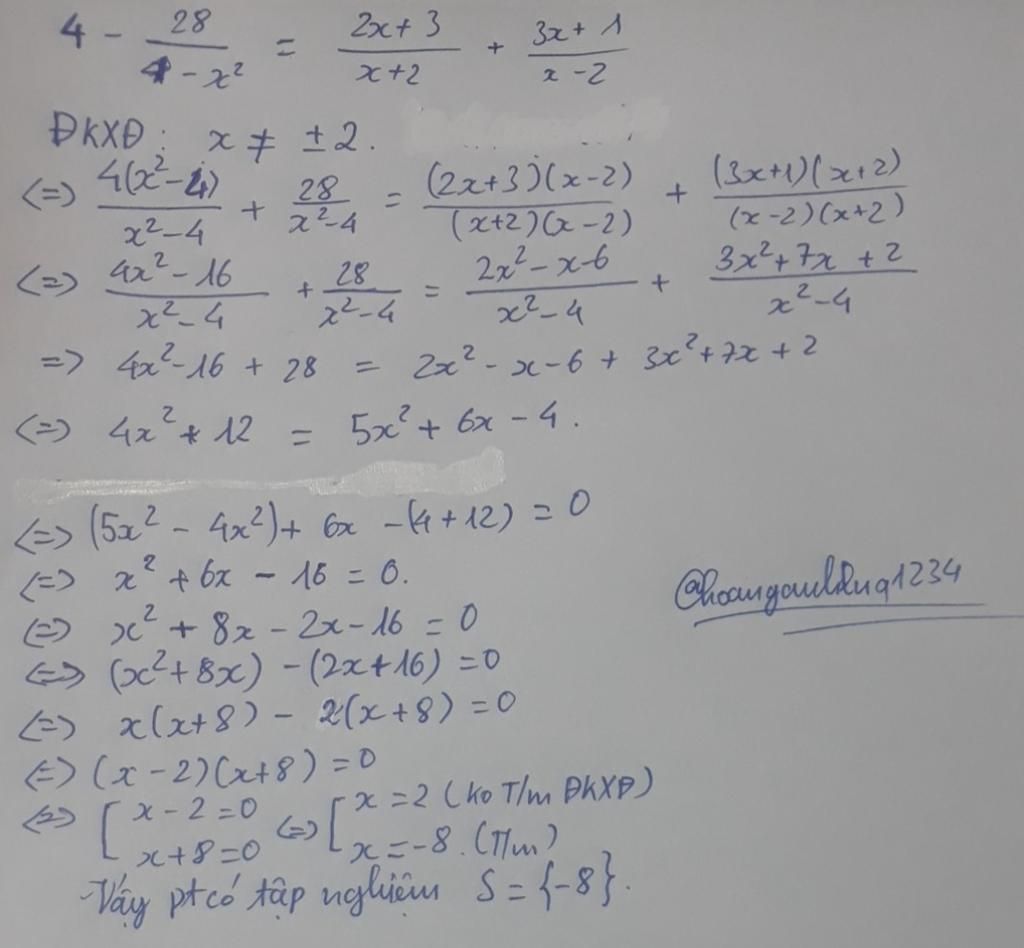 4 - 28/(4 - x²) = (2x+3)/(x+2) + (3x+1)/(x-2)
ĐKXĐ: x ≠ ±2.
<=> 4(x²-4)/(x²-4) + 28/(x²-4) = (2x+3)(x-2)/(x+2)(x-2) + (3x+1)(x+2)/(x-2)(x+2)
<=> (4x²-16)/(x²-4) + 28/(x²-4) = (2x²-x-6)/(x²-4) + (3x²+7x+2)/(x²-4)
=> 4x²-16 + 28 = 2x² - x - 6 + 3x²+7x+2
<=> 4x² + 12 = 5x² + 6x - 4.
<=> (5x² - 4x²) + 6x - (4+12) = 0
<=> x² + 6x - 16 = 0.
<=> x² + 8x - 2x - 16 = 0
<=> (x²+8x) - (2x+16) = 0
<=> x(x+8) - 2(x+8) = 0
<=> (x-2)(x+8) = 0
<=> [ x-2=0 <=> [ x = 2 (ko T/m ĐKXĐ)
x+8=0 x = -8. (T/m)
Vậy pt có tập nghiệm S = {-8}.